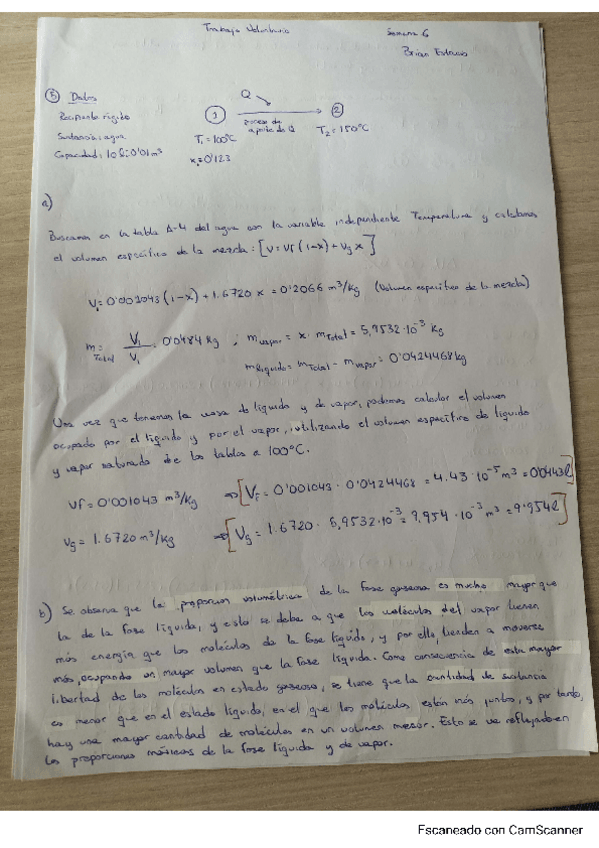 Trabajo Voluntario Semana 6
Brian
⑤ Datos
Recipiente rígido
Sustancia: agua
Capacidad: 10 l: 0'01 m³
Q
① → ②
proceso de
aporte de Q
T₁ = 100°C
T₂ = 150°C
x₁ = 0'123
a)
Buscamos en la tabla A-4 del agua con la variable independiente Temperatura y calculamos
el volumen específico de la mezcla: [v = vf (1-x) + vg x]
v₁ = 0'001043 (1-x) + 1.6720 x = 0'2066 m³/kg (Volumen específico de la mezcla)
m Total = V₁/v₁ = 0'0484 kg ; m vapor = x · m Total = 5,9532·10⁻³ kg
m líquido = m Total - m vapor = 0'0424468 kg
Una vez que tenemos la masa de líquido y de vapor, podemos calcular el volumen
ocupado por el líquido y por el vapor, utilizando el volumen específico de líquido
y vapor saturado de las tablas a 100°C.
vf = 0'001043 m³/kg ⇒ [Vf = 0'001043 · 0'0424468 = 4.43·10⁻⁵ m³ = 0'0443 l]
vg = 1.6720 m³/kg ⇒ [Vg = 1.6720 · 5,9532·10⁻³ = 9,954·10⁻³ m³ = 9'954 l]
b) Se observa que la proporción volumétrica de la fase gaseosa es mucho mayor que
la de la fase líquida, y esto se debe a que las moléculas del vapor tienen
más energía que las moléculas de la fase líquida, y por ello, tienden a moverse
más, ocupando un mayor volumen que la fase líquida. Como consecuencia de esta mayor
libertad de las moléculas en estado gaseoso, se tiene que la cantidad de sustancia
es menor que en el estado líquido, en el que las moléculas están más juntas, y por tanto,
hay una mayor cantidad de moléculas en un volumen menor. Esto se ve reflejado en
las proporciones másicas de la fase líquida y de vapor.
Escaneado con CamScanner